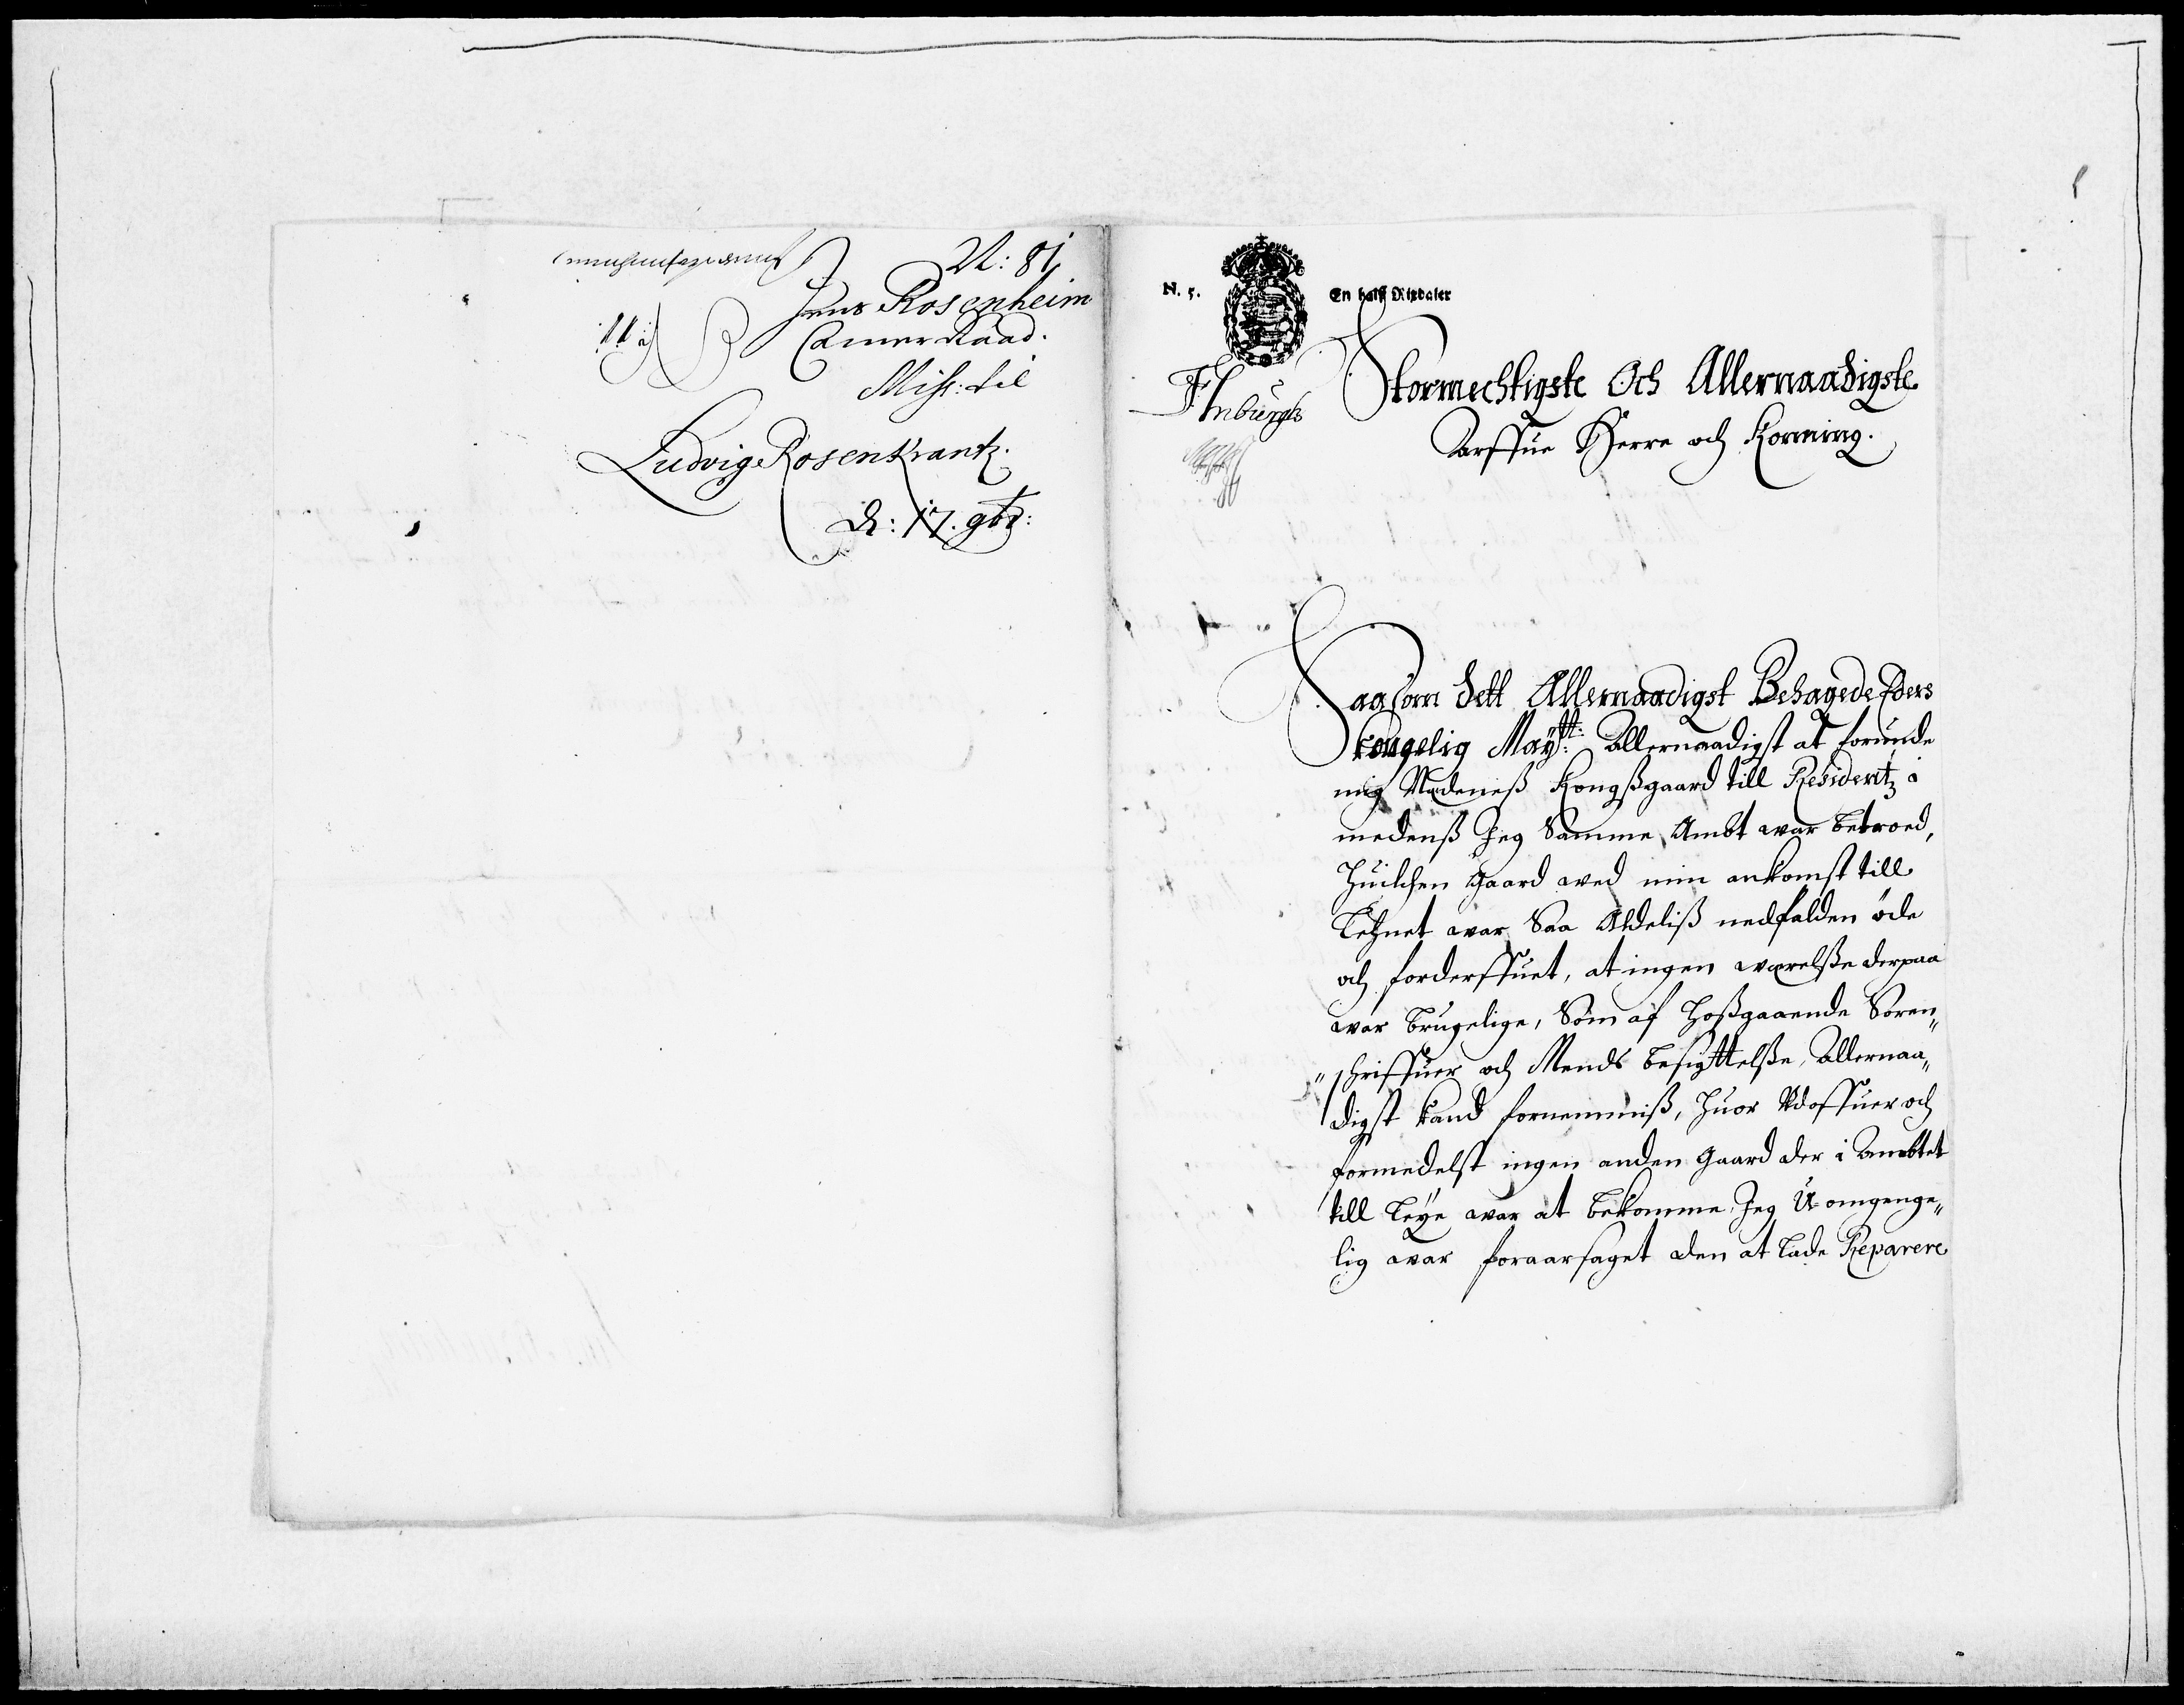 N: 81
Jens Rosenheim
Camer Raad.
Miss: til
Ludvig Rosenkrantz.
d: 17. 9br:
N. 5.
En halff Rixdaler
Stormechtigste Och Allernaadigste
Arffue Herre och Konning.
Saasom dett Allernaadigst Behagede Eders
Kongelig Maytt: Allernaadigst at forunde
mig Nedeness Kongssgaard till Residentz i
medenss Jeg Samme Ambt war betroed,
Huilchen gaard wed min ankomst till
Lehnet war Saa Aldeliss nedfalden öde
och forderffuet, at ingen werelsse derpaa
war brugelige, Som af hossgaaende Soren„
„schriffuer och Mends besigttelsse, Allernaa„
digst kand fornemmiss, huor Udoffuer och
formedelst ingen anden gaard der i Ambtet
till Leÿe war at bekomme, Jeg U-omgenge„
lig war foraarsaget den at lade Reparere